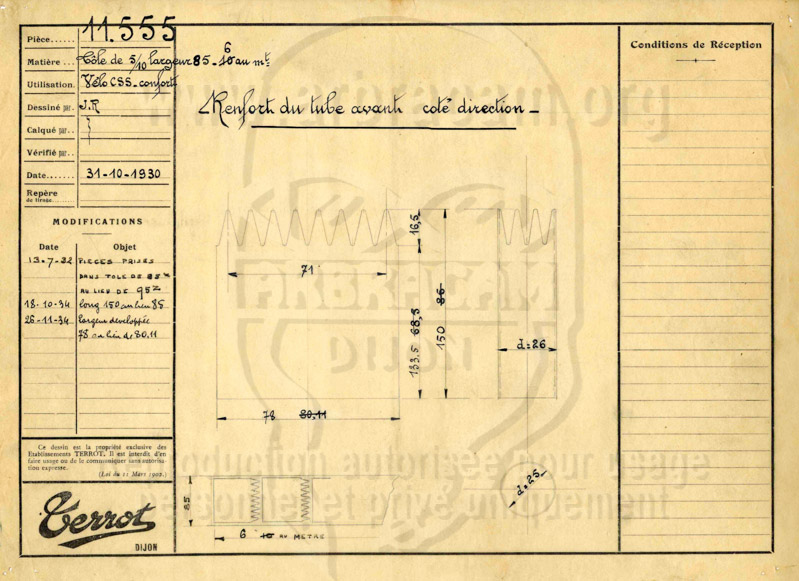 Pièce...... 11.555
Matière... Tôle de 5/10 largeur 85 - 6 10 au mt:
Utilisation. Vélo CSS - confort
Dessiné par. J.R
Calqué par..
Vérifié par..
Date....... 31-10-1930
Repère
de tirage......
MODIFICATIONS
Date Objet
13-7-32 PIECES PRISES
DANS TOLE DE
AU LIEU DE
18-10-34 long 150 au lieu 85
26-11-34. largeur développée
78 au lieu de 80.11
Ce dessin est la propriété exclusive des
Etablissements TERROT. Il est interdit d'en
faire usage ou de le communiquer sans autorisa-
tion expresse.
(Loi du 11 Mars 1902.)
Terrot
DIJON
Renfort du tube avant coté direction -
71
16,5
133.5 68,5
150 86
d=26
78 80.11
85
6 10 AU METRE
d=25
Conditions de Réception
www.arbracam.org
ARBRACAM
DIJON
Reproduction autorisée pour usage
personnel et privé uniquement